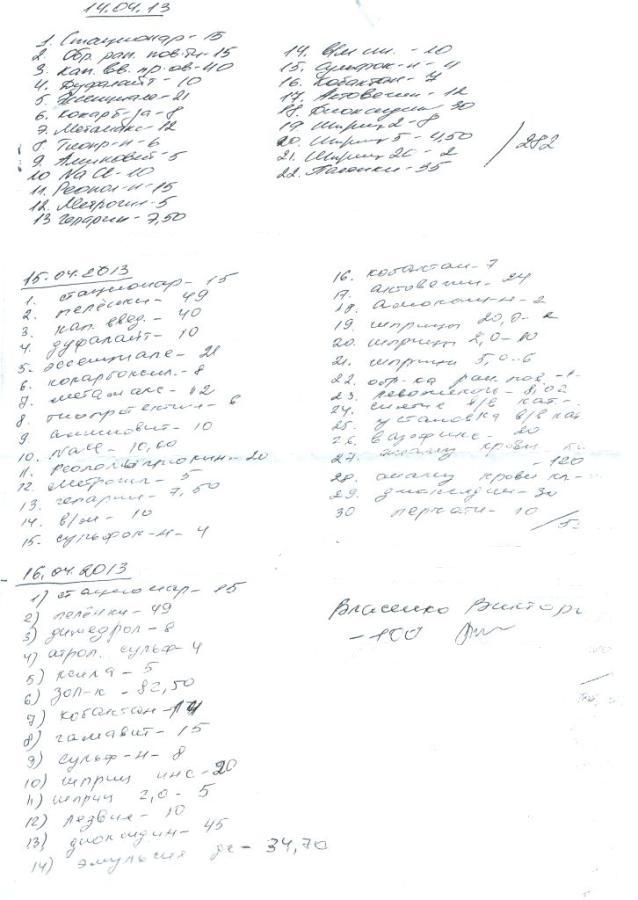 14.04.13
1. Стационар - 15
2. Обр. ран. пов-ти - 15
3. кап. вв. пр-ов - 40
4. Дуфалайт - 10
5. Эссенциале - 21
6. кокарб-за - 8
7. Метамакс - 12
8. Тиопр-н - 6
9. Аминовит - 5
10 NaCl - 10
11. Реопол-н - 15
12. Метрогил - 5
13 гепарин - 7,50
14. в/м ин. - 10
15. Сульфок-н - 4
16. Кобактан - 7
17. Актовегин - 12
18. Диоксидин 30
19 шприц 2 - 8
20. шприц 5 - 4,50
21. Шприц 20 - 2
22. Пеленки - 35
/ 282
15.04.2013
1. стационар - 15
2. пелёнки - 49
3. кап. введ. - 40
4. дуфалайт - 10
5. эссенциале - 21
6. кокарбоксил. - 8
7. метамакс - 12
8. тиопротектин - 6
9. аминовит - 10
10. NaCl - 10,00
11. - 20
12. метрогил - 5
13. гепарин - 7,50
14. в/м - 10
15. сульфок-н - 4
16. кобактан - 7
17. актовегин - 24
18. 2
19. шприцы 20,0 - 2
20. шприцы 2,0 - 10
21. шприцы 5,0 - 6
22. обр-ка ран. пов. -
23. левомеколь - 8,02
24. снятие в/в кат. -
25. установка в/в кат
26. вазофикс - 20
27. анализ крови
- 120
28. анализ крови кл -
29. диоксидин - 30
30 перчатк. - 10
16.04.2013
1) стационар - 15
2) пелёнки - 49
3) димедрол - 8
4) атроп. сульф - 4
5) ксила - 5
6) зол-к - 82,50
7) кобактан - 14
8) гамавит - 15
9) сульф-н - 8
10) шприц инс - 20
11) шприц 2,0 - 5
12) лезвия - 10
13) диоксидин - 45
14) эмульсия - 34,70
Власенко Виктор
- 100